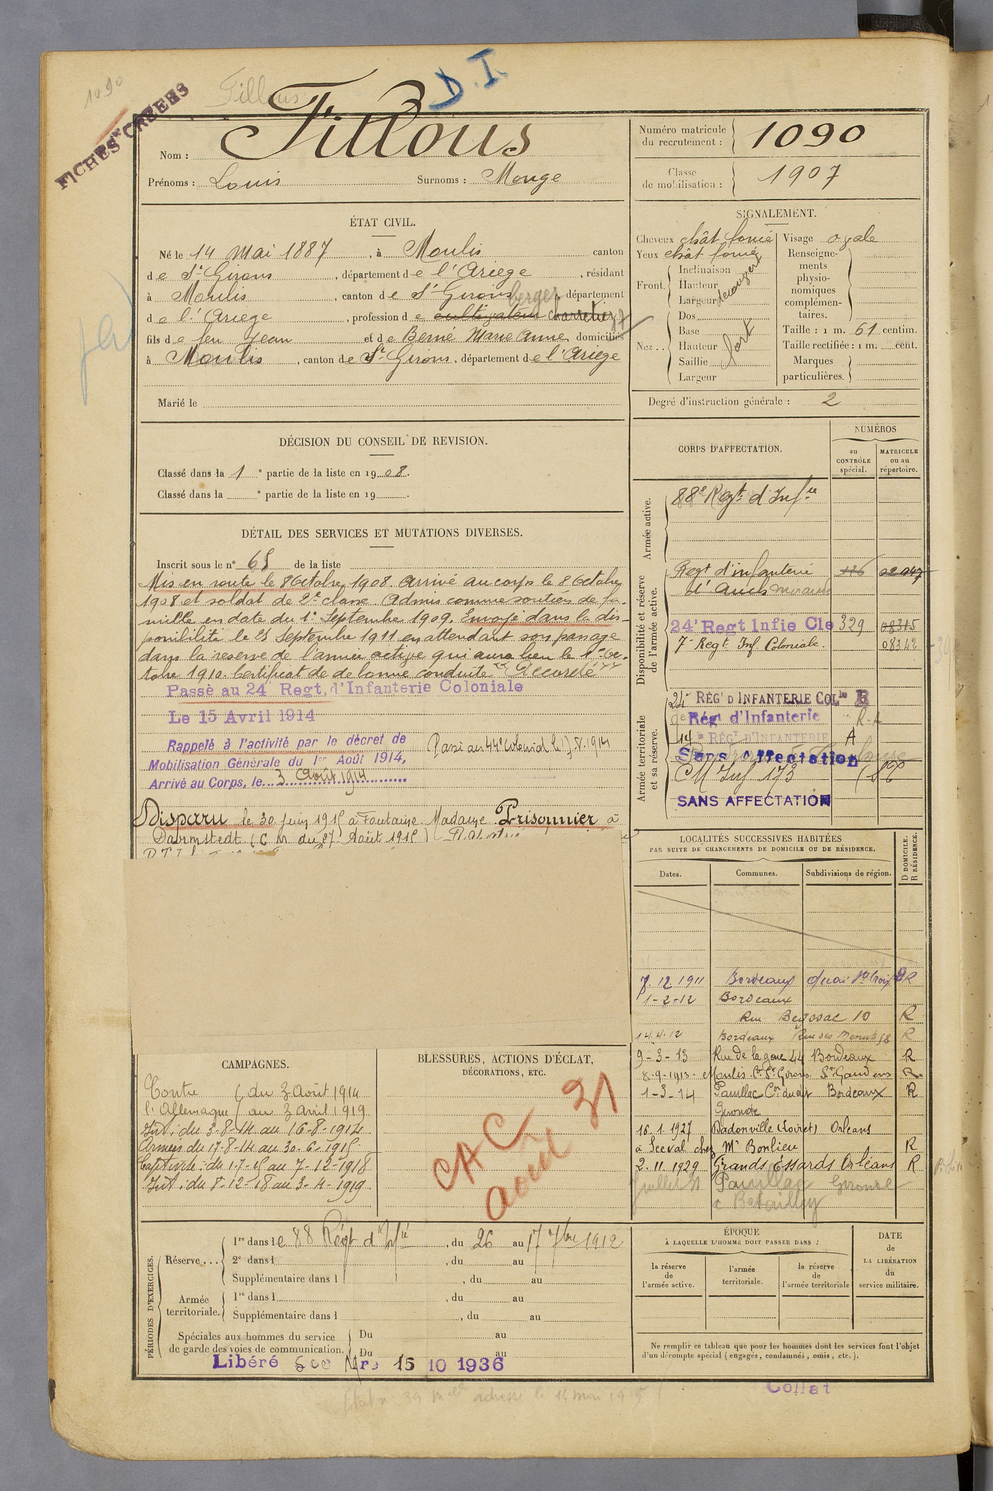 1090
Fillous
D.I.
FICHES CRÉÉES
Nom : Fillous
Prénoms : Louis Surnoms : Monge
Numéro matricule du recrutement : 1090
Classe de mobilisation : 1907
ÉTAT CIVIL.
Né le 14 Mai 1887, à Moulis canton
de St Girons, département de l'Ariège, résidant
à Moulis, canton de St Girons, département
de l'Ariège, profession de cultivateur charretier berger
fils de feu Jean et de Berné Marie Anne domiciliés
à Moulis, canton de St Girons, département de l'Ariège
Marié le
SIGNALEMENT.
Cheveux chât foncé Visage ovale
Yeux chât foncé
Front. Inclinaison
Hauteur
Largeur
Nez. Dos
Base
Hauteur
Saillie
Largeur
fort
Renseignements physionomiques complémentaires.
Taille : 1 m. 61 centim.
Taille rectifiée : 1 m. cent.
Marques particulières.
Degré d'instruction générale : 2
DÉCISION DU CONSEIL DE REVISION.
Classé dans la 1e partie de la liste en 1908.
Classé dans la e partie de la liste en 19 .
DÉTAIL DES SERVICES ET MUTATIONS DIVERSES.
Inscrit sous le n° 68 de la liste
Mis en route le 8 Octobre 1908. Arrivé au corps le 8 Octobre
1908 et soldat de 2e classe. Admis comme soutien de fa-
mille en date du 1er Septembre 1909. Envoyé dans la dis-
ponibilité le 25 Septembre 1911 en attendant son passage
dans la réserve de l'armée active qui aura lieu le 1er Oc-
tobre 1910. Certificat de bonne conduite Accordé
Passé au 24e Regt, d'Infanterie Coloniale
Le 15 Avril 1914
Rappelé à l'activité par le décret de
Mobilisation Générale du 1er Août 1914,
Arrivé au Corps, le 3 Août 1914
Disparu le 30 Juin 1915 à Fontaine Madame Prisonnier à
Darmstedt (C M du 27 Août 1915)
CORPS D'AFFECTATION.
NUMÉROS
au CONTRÔLE spécial.
MATRICULE ou au répertoire.
Armée active.
88e Regt d'Infie
Disponibilité et réserve de l'armée active.
Regt d'infanterie
24e Regt Infie Cle 329
7e Regt Inf Coloniale.
Armée territoriale et sa réserve.
24e RÉGt D'INFANTERIE COLle B
Régt d'Infanterie
RÉGt D'INFANTERIE A
Sans affectation
CM Inf 173
SANS AFFECTATION
LOCALITÉS SUCCESSIVES HABITÉES
PAR SUITE DE CHANGEMENTS DE DOMICILE OU DE RÉSIDENCE.
Dates. Communes. Subdivisions de région. D DOMICILE. R RÉSIDENCE.
7.12 1911 Bordeaux Quai Ste Croix R
1-2-12 Bordeaux
Rue Begosac 10 R
14 4-12 Bordeaux R
9-3-13 Rue de la gare 44 Bordeaux R
8-9-1913 Moulis Cton St Girons St Gaudens R
1-3-14 Pauillac Con dudit Bordeaux R
Gironde
16.1.1927 Dadonville (Loiret) Orléans
à Seeval chez Mr Bonlieu R
2-11.1929 Grands Essards Orléans R
Pauillac Gironde
c Batailley
CAMPAGNES.
Contre l'Allemagne du 3 Août 1914
au 3 avril 1919
Int : du 3-8-14 au 16-8-1914
Armées du 17-8-14 au 30-6-1915
Captivité : du 1-7-15 au 7-12-1918
Int : du 8-12-18 au 3-4-1919
BLESSURES, ACTIONS D'ÉCLAT,
DÉCORATIONS, ETC.
CAC
Août 31
PÉRIODES D'EXERCICES.
Réserve... 1re dans le 88 Régt d'Infie, du 26 au 17 7bre 1912
2e dans l , du au
Supplémentaire dans l , du au
Armée territoriale. 1re dans l , du au
Supplémentaire dans l , du au
Spéciales aux hommes du service de garde des voies de communication. Du au
Du au
Libéré 15 10 1936
ÉPOQUE
À LAQUELLE L'HOMME DOIT PASSER DANS :
la réserve de l'armée active.
l'armée territoriale.
la réserve de l'armée territoriale
DATE
de
LA LIBÉRATION
du
service militaire.
Ne remplir ce tableau que pour les hommes dont les services font l'objet
d'un décompte spécial (engagés, condamnés, omis, etc.).
Collat